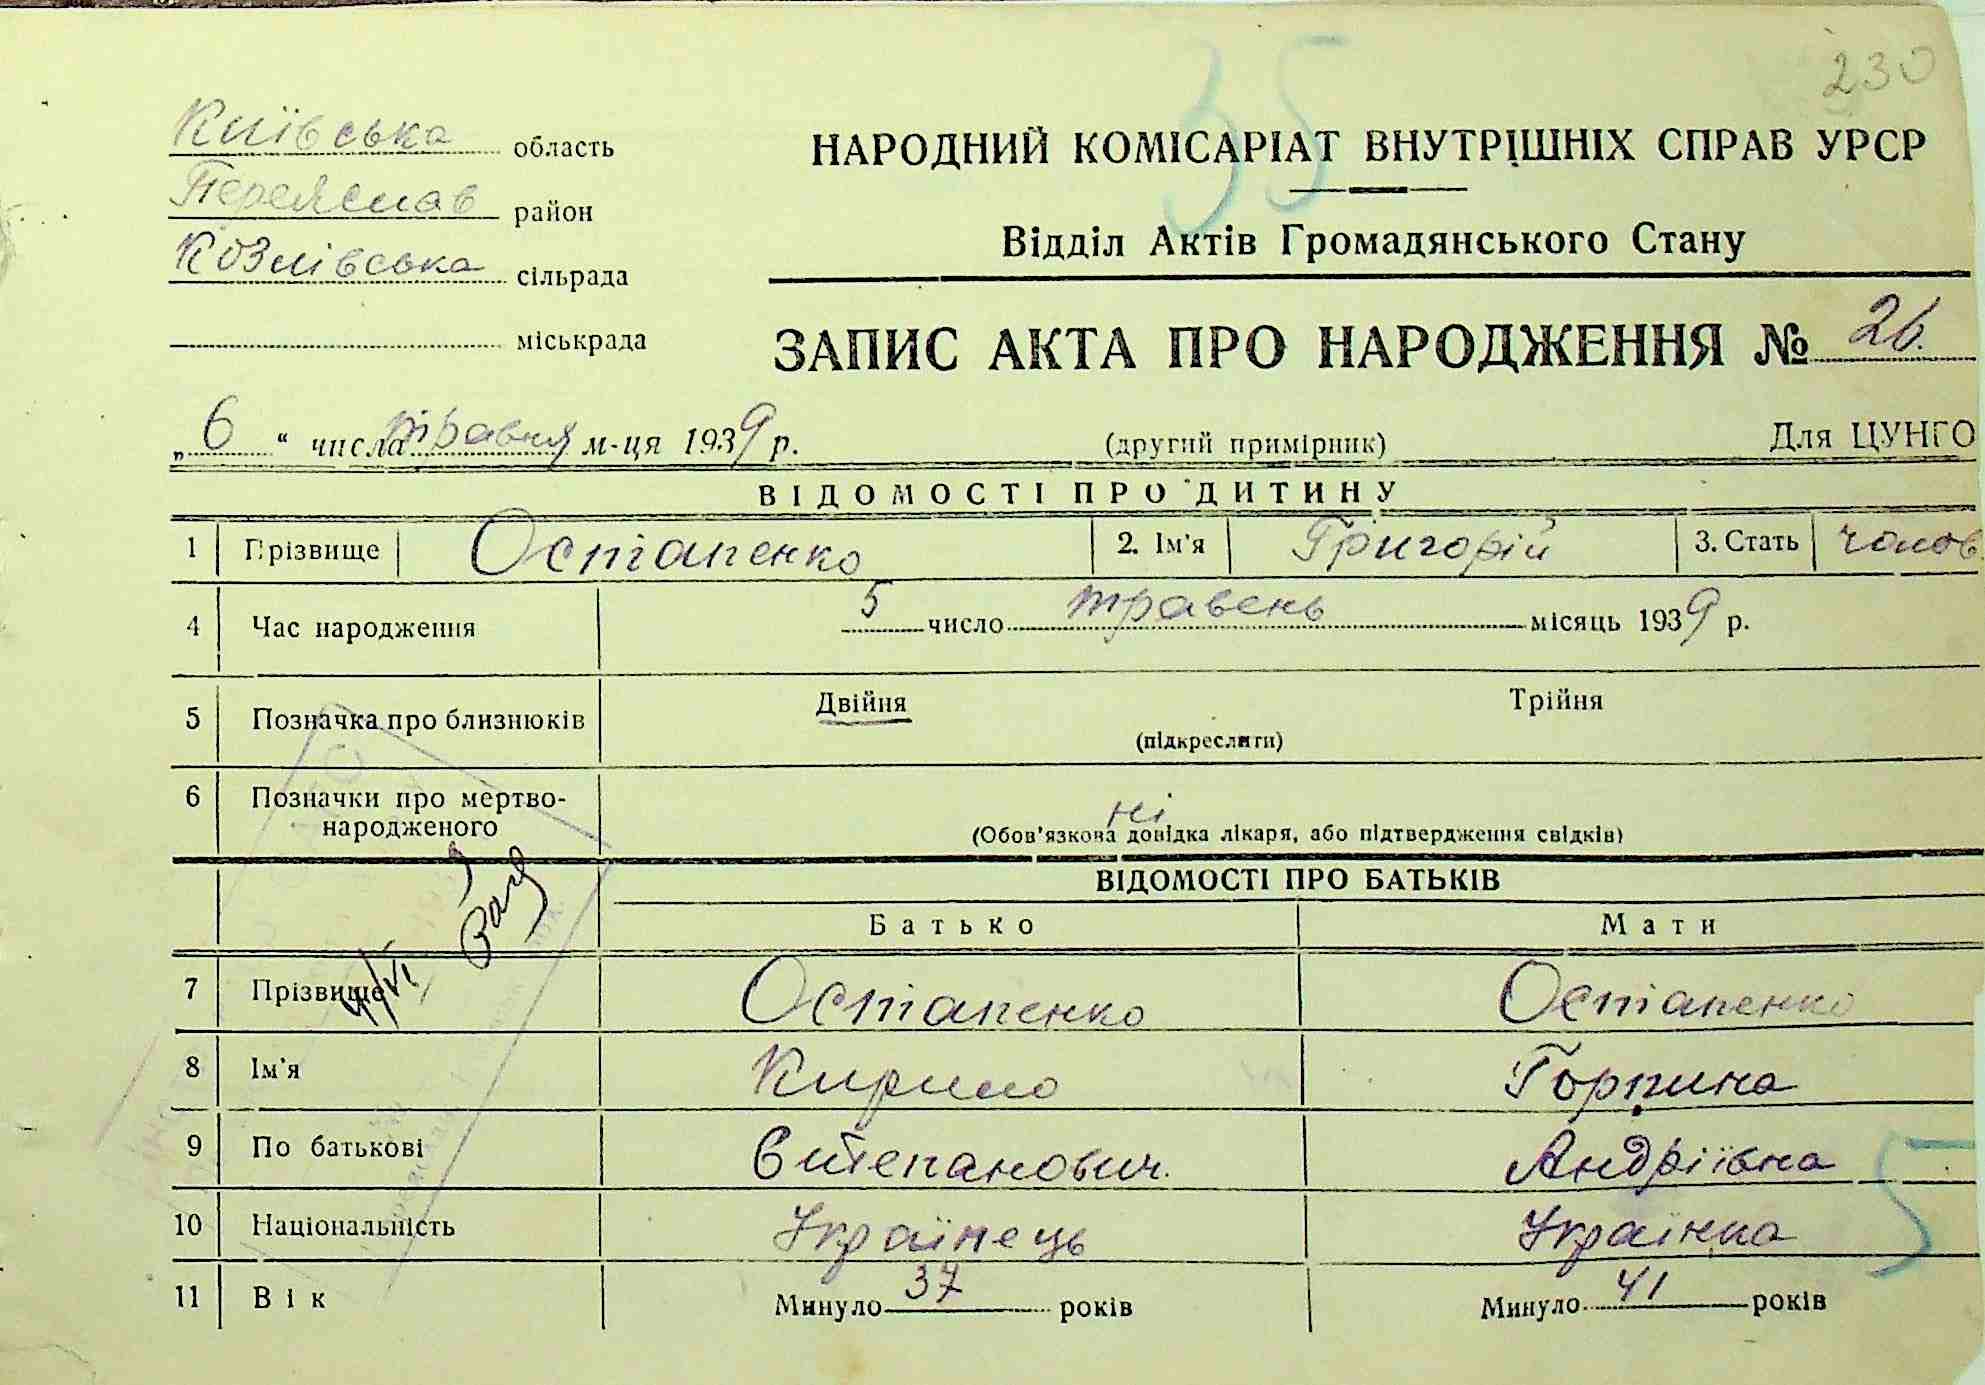 230
35
Київська область
Переяслав район
Козлівська сільрада
міськрада
НАРОДНИЙ КОМІСАРІАТ ВНУТРІШНІХ СПРАВ УРСР
Відділ Актів Громадянського Стану
ЗАПИС АКТА ПРО НАРОДЖЕННЯ № 26.
„6“ числа травня м-ця 1939 р. (другий примірник) Для ЦУНГО
ВІДОМОСТІ ПРО ДИТИНУ
1 Прізвище Остапенко 2. Ім'я Григорій 3. Стать чолов.
4 Час народження 5 число травень місяць 1939 р.
5 Позначка про близнюків Двійня Трійня
(підкреслити)
6 Позначки про мертво-
народженого ні
(Обов'язкова довідка лікаря, або підтвердження свідків)
ВІДОМОСТІ ПРО БАТЬКІВ
Батько Мати
7 Прізвище Остапенко Остапенко
8 Ім'я Кирило Горпина
9 По батькові Степанович. Андріївна
10 Національність Українець Українка
5
11 Вік Минуло 37 років Минуло 41 років